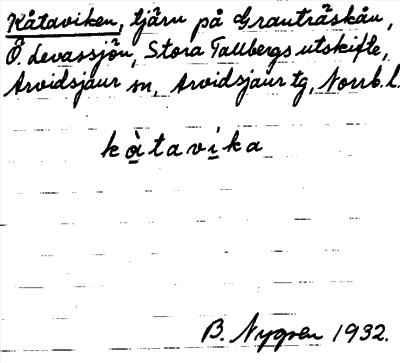 Kåtaviken, tjärn på Granträskån,
Ö. Levassjön, Stora Tallbergs utskifte,
Arvidsjaur sn, Arvidsjaur tg, Norrb. l.
kàtavika
B. Nygren 1932.